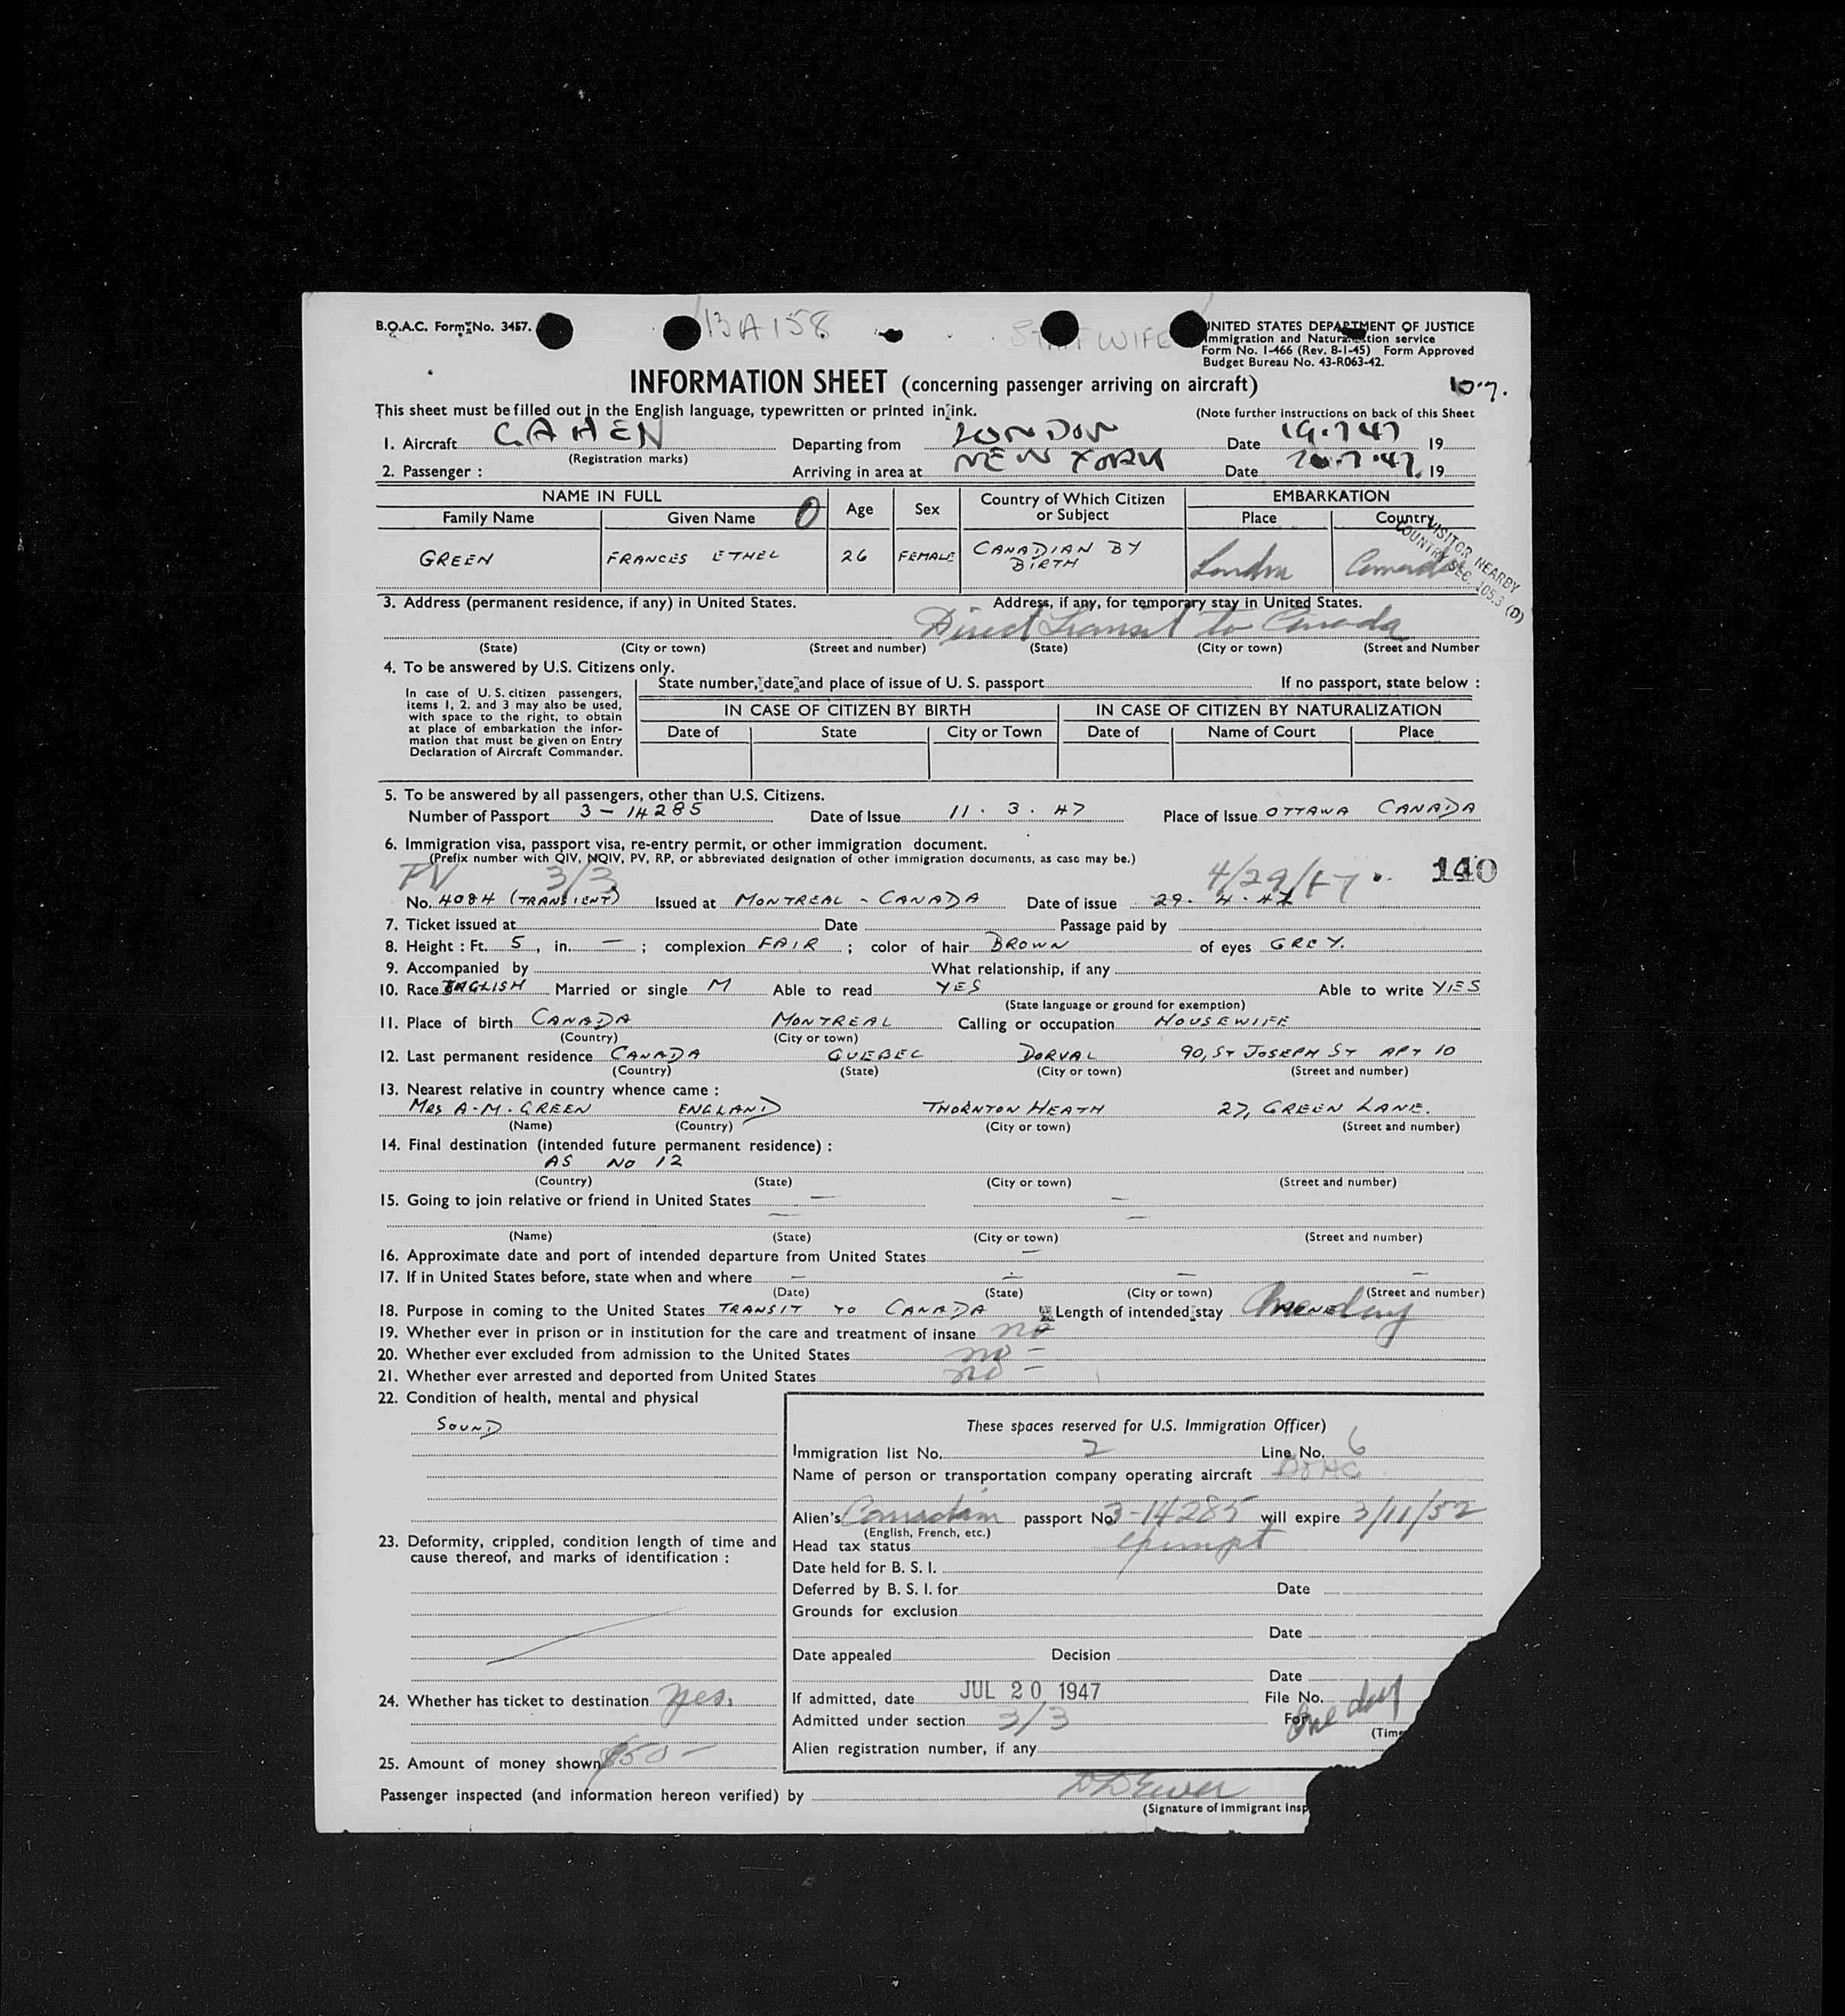 B.O.A.C. Form No. 3457.
BA158
STAFF WIFE
UNITED STATES DEPARTMENT OF JUSTICE
Immigration and Naturalization service
Form No. I-466 (Rev. 8-1-45) Form Approved
Budget Bureau No. 43-R063-42.
INFORMATION SHEET (concerning passenger arriving on aircraft)
This sheet must be filled out in the English language, typewritten or printed in ink. (Note further instructions on back of this Sheet
1. Aircraft GAHEN Departing from LONDON Date 19.7.47 19
(Registration marks)
2. Passenger : Arriving in area at NEW YORK Date 20.7.47. 19
NAME IN FULL Age Sex Country of Which Citizen or Subject EMBARKATION
Family Name Given Name Place Country
GREEN FRANCES ETHEL 26 FEMALE CANADIAN BY BIRTH London Canada
VISITOR NEARBY
COUNTRY SEC. 105.3 (D)
3. Address (permanent residence, if any) in United States. Address, if any, for temporary stay in United States.
Direct Transit to Canada
(State) (City or town) (Street and number) (State) (City or town) (Street and Number
4. To be answered by U.S. Citizens only.
State number, date and place of issue of U. S. passport If no passport, state below :
In case of U. S. citizen passengers,
items 1, 2. and 3 may also be used,
with space to the right, to obtain
at place of embarkation the infor-
mation that must be given on Entry
Declaration of Aircraft Commander.
IN CASE OF CITIZEN BY BIRTH IN CASE OF CITIZEN BY NATURALIZATION
Date of State City or Town Date of Name of Court Place
5. To be answered by all passengers, other than U.S. Citizens.
Number of Passport 3-14285 Date of Issue 11. 3. 47 Place of Issue OTTAWA CANADA
6. Immigration visa, passport visa, re-entry permit, or other immigration document.
(Prefix number with QIV, NQIV, PV, RP, or abbreviated designation of other immigration documents, as case may be.)
PV 3/3 4/29/47 140
No. 4084 (TRANSIENT) Issued at MONTREAL - CANADA Date of issue 29. 4. 47
7. Ticket issued at Date Passage paid by
8. Height : Ft. 5, in. — ; complexion FAIR ; color of hair BROWN of eyes GREY.
9. Accompanied by What relationship, if any
10. Race ENGLISH Married or single M Able to read YES Able to write YES
(State language or ground for exemption)
11. Place of birth CANADA MONTREAL Calling or occupation HOUSEWIFE
(Country) (City or town)
12. Last permanent residence CANADA QUEBEC DORVAL 90, ST JOSEPH ST APT 10
(Country) (State) (City or town) (Street and number)
13. Nearest relative in country whence came :
MRS A.M. GREEN ENGLAND THORNTON HEATH 27, GREEN LANE.
(Name) (Country) (City or town) (Street and number)
14. Final destination (intended future permanent residence) :
AS NO 12
(Country) (State) (City or town) (Street and number)
15. Going to join relative or friend in United States — —
— —
(Name) (State) (City or town) (Street and number)
16. Approximate date and port of intended departure from United States —
17. If in United States before, state when and where — — — —
(Date) (State) (City or town) (Street and number)
18. Purpose in coming to the United States TRANSIT TO CANADA Length of intended stay NONE One day
19. Whether ever in prison or in institution for the care and treatment of insane no
20. Whether ever excluded from admission to the United States no —
21. Whether ever arrested and deported from United States no —
22. Condition of health, mental and physical
SOUND
These spaces reserved for U.S. Immigration Officer)
Immigration list No. 2 Line No. 6
Name of person or transportation company operating aircraft BOAC
Alien's Canadian passport No 3-14285 will expire 3/11/52
(English, French, etc.)
23. Deformity, crippled, condition length of time and
cause thereof, and marks of identification :
Head tax status exempt
Date held for B. S. I.
Deferred by B. S. I. for Date
Grounds for exclusion
Date
Date appealed Decision
Date
24. Whether has ticket to destination yes.
If admitted, date JUL 20 1947 File No.
Admitted under section 3/3 For One day
(Time
Alien registration number, if any
25. Amount of money shown $50 —
Passenger inspected (and information hereon verified) by
(Signature of Immigrant Insp